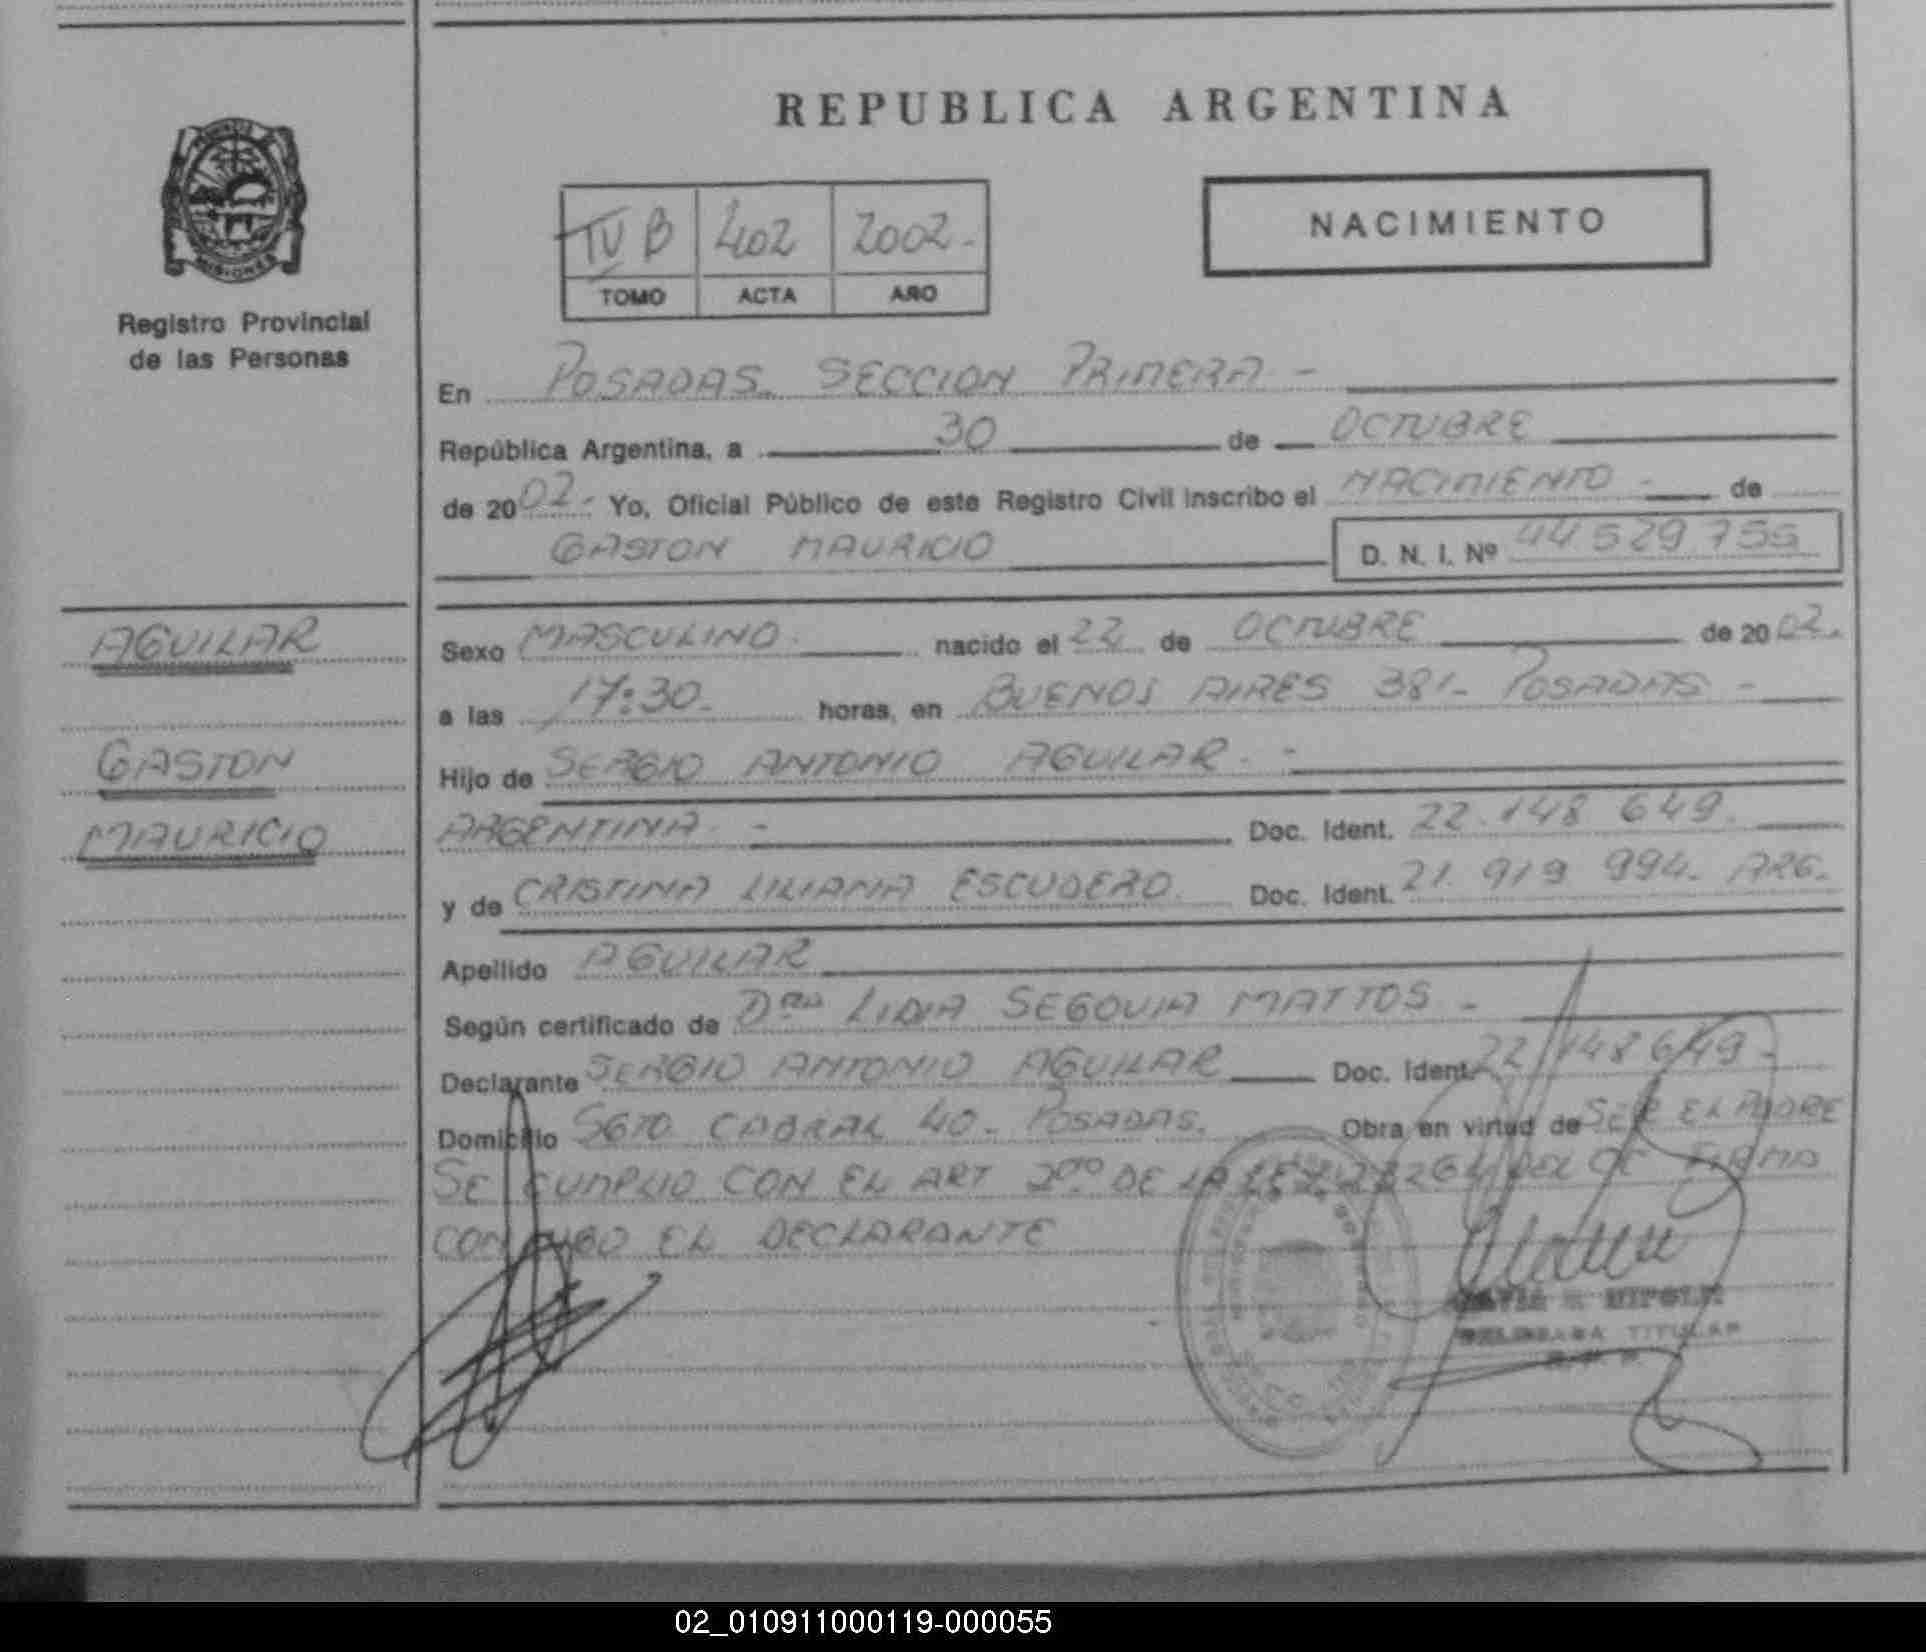 REPUBLICA ARGENTINA
NACIMIENTO
IV B 402 2002.
TOMO ACTA AÑO
MISIONES
Registro Provincial
de las Personas
En POSADAS. SECCION PRIMERA -
República Argentina, a 30 de OCTUBRE
de 2002.- Yo, Oficial Público de este Registro Civil inscribo el NACIMIENTO - de
GASTON MAURICIO D. N. I. Nº 44 529 755
AGUILAR
GASTON
MAURICIO
Sexo MASCULINO. nacido el 22 de OCTUBRE de 2002.
a las 17:30. horas, en BUENOS AIRES 381- POSADAS -
Hijo de SERGIO ANTONIO AGUILAR. -
ARGENTINA. - Doc. Ident. 22.148 649.
y de CRISTINA LILIANA ESCUDERO. Doc. Ident. 21. 919 994. ARG.
Apellido AGUILAR
Según certificado de Dra LIDIA SEGOVIA MATTOS -
Declarante SERGIO ANTONIO AGUILAR Doc. Ident. 22 148 649-
Domicilio SGTO CABRAL 40- POSADAS. Obra en virtud de SER EL PADRE
SE CUMPLIO CON EL ART 2do DE LA LEY DEL CE FIRMA
CONMIGO EL DECLARANTE
TITULAR
02_010911000119-000055